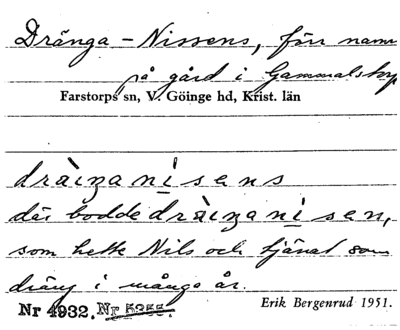 Dränga-Nissens, förr namn
på gård i Gammalstorp
Farstorps sn, V. Göinge hd, Krist. län
dràiŋanísens
där bodde dràiŋanísen,
som hette Nils och tjänat som
dräng i många år.
Nr 4932. Nr 5355.
Erik Bergenrud 1951.